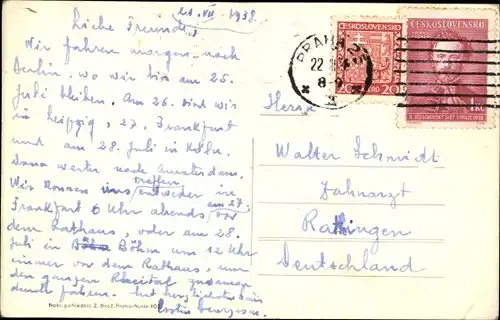 21. VII. 1938.
Liebe Freunde,
Wir fahren morgen nach
Berlin, wo wir bis am 25.
Juli bleiben. Am 26. sind wir
in Leipzig, 27. Frankfurt
und am 28. Juli in Köln.
Dann weiter nach Amsterdam.
Wir können uns treffen entweder in
Frankfurt 6 Uhr abends am 27. vor
dem Rathaus, oder am 28.
Juli in Böhm um 12 Uhr
immer vor dem Rathaus, um
den ganzen zusammen
durch fahren. Mit herzlichsten
Nakl. pohlednic Z. Brož, Praha-Nusle
ČESKOSLOVENSKO
20 20
ČESKOSLOVENSKO
1 Kč
X. VŠESOKOLSKÝ SLET V PRAZE 1938
PRAHA 25
22
8
Herrn
Walter Schmidt
Zahnarzt
Rattingen
Deutschland